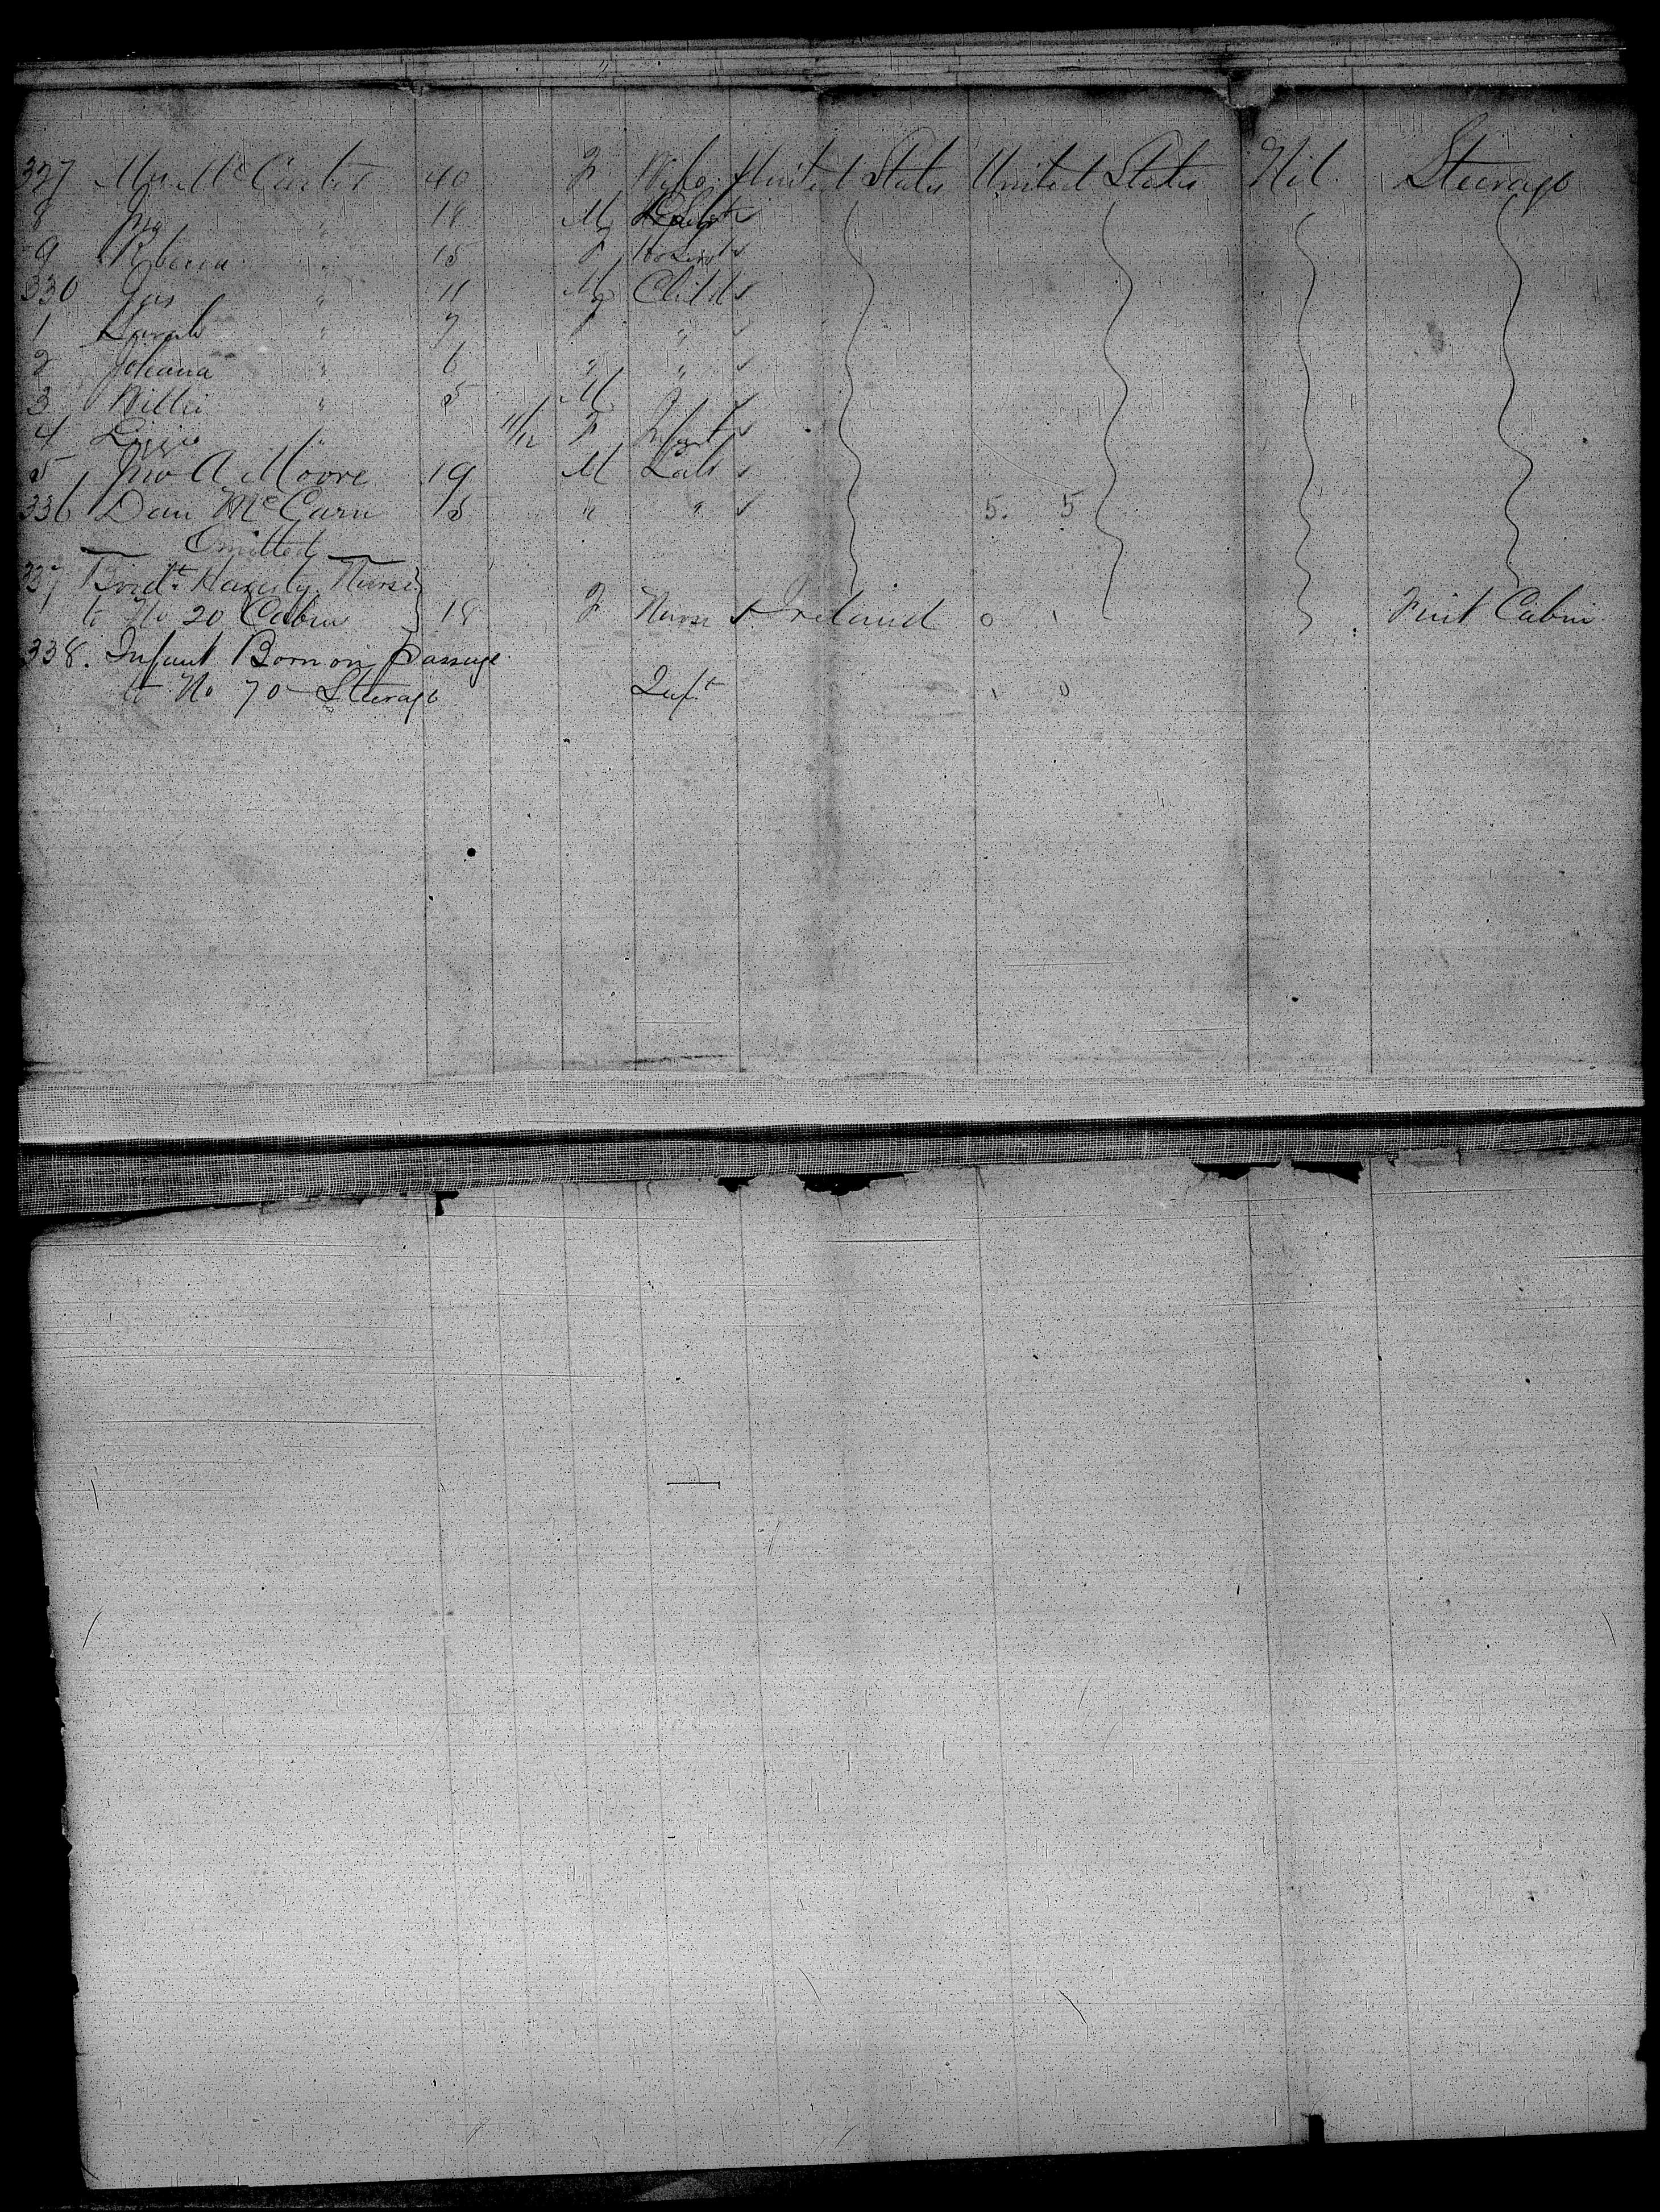 327 Mrs McCarter 40 F Wife United States United States Nil Steerage
8 Jno " 18 M
9 " 15 F
330 Jas " 11 M Child
1 Sarah " 7 F "
2 Johana " 6 " "
3 Willie " 5 M "
4 Lizzie " 11/12 F Infant
5 Jno A Moore 19 M Lab
336 Dan McCarn 18 " " 5. 5
Omitted
337 Bridt. Hagerty Nurse
to No 20 Cabin 18 F Nurse Ireland 0 1 First Cabin
338. Infant Born on passage
to No 70 Steerage Inft 1 0